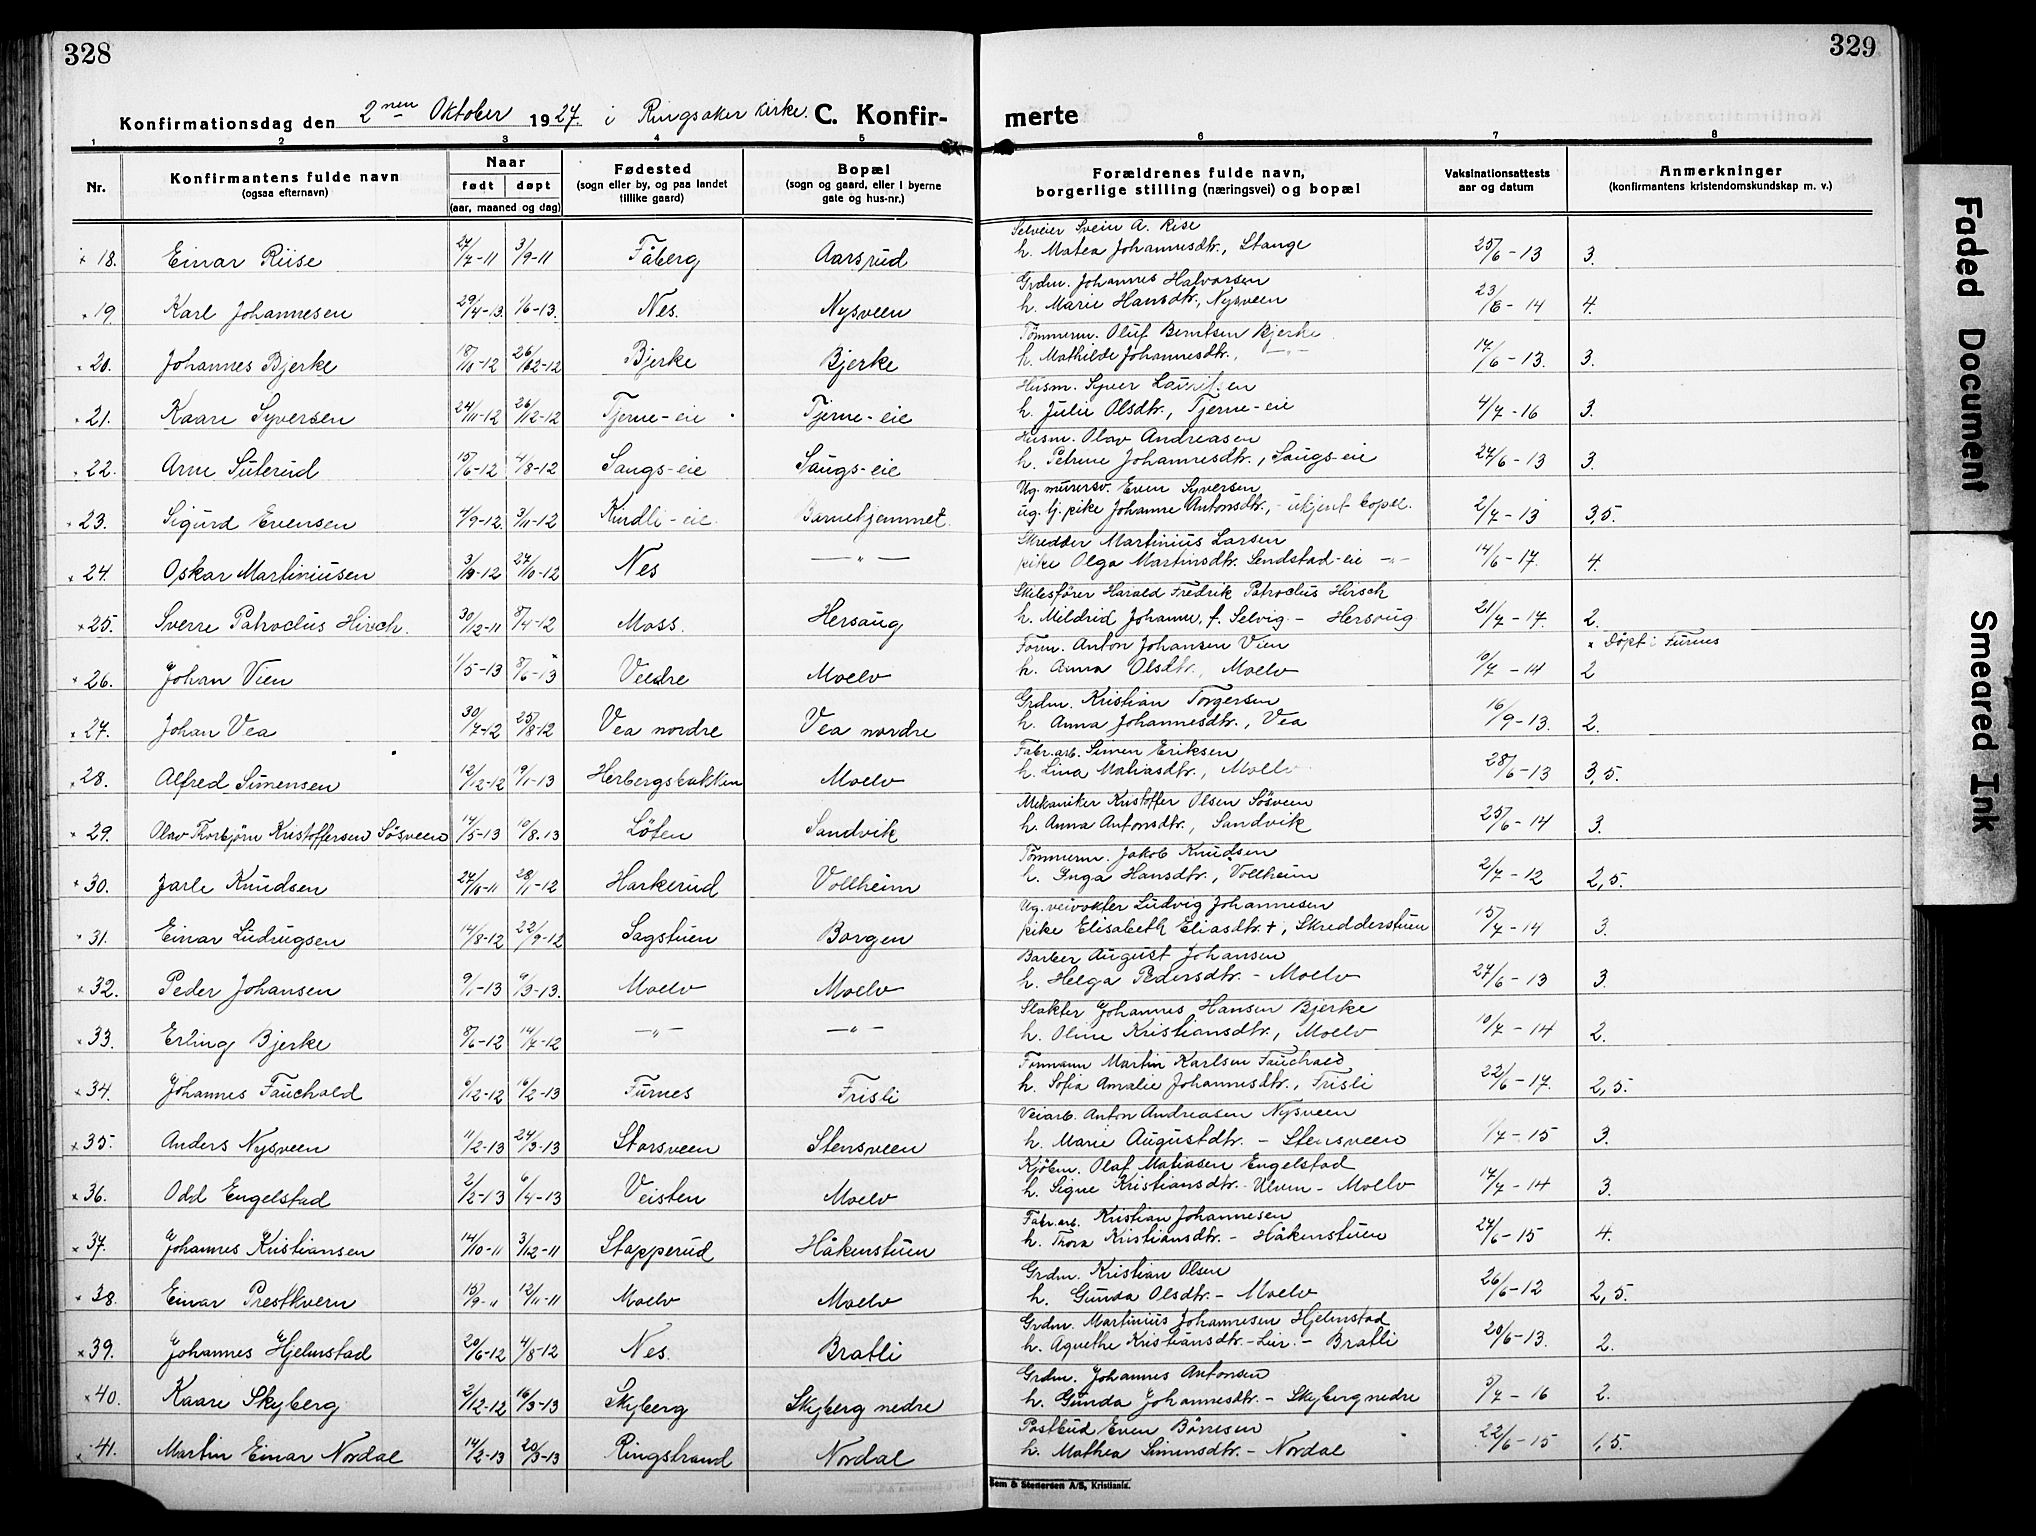 328
329
Konfirmationsdag den 2nen Oktober 1927. i Ringsaker kirke. C. Konfir- merte
1 2 3 4 5 6 7 8
Nr.
Konfirmantens fulde navn
(ogsaa efternavn)
Naar
født døpt
(aar, maaned og dag)
Fødested
(sogn eller by, og paa landet
tillike gaard)
Bopæl
(sogn og gaard, eller i byerne
gate og hus-nr.)
Forældrenes fulde navn,
borgerlige stilling (næringsvei) og bopæl
Vaksinationsattests
aar og datum
Anmerkninger
(konfirmantens kristendomskundskap m. v.)
Selveier Svein A. Rise
18. Einar Riise 27/7-11 3/9-11 Fåberg Aarsrud h. Matea Johannesdtr., Stange 25/6-13 3.
Grdm. Johannes Halvorsen
19. Karl Johannesen 29/4-13. 1/6-13. Nes. Nysveen h. Marie Hansdtr., Nysveen 23/8-14 4.
Tømmerm. Oluf Berntsen Bjerke
20. Johannes Bjerke 18/11-12 26/12-12 Bjerke Bjerke h. Mathilde Johannesdtr., -"- 17/6-13. 3.
Husm. Syver Lauritzen
21. Kaare Syversen 24/11-12 26/12-12 Tjerne-eie Tjerne-eie h. Julie Olsdtr., Tjerne-eie 4/7-16 3.
Husm. Olav Andreasen
22. Arne Suterud 15/6-12 4/8-12 Saugs-eie Saugs-eie h. Petrine Johannesdtr., Saugs-eie 27/6-13 3.
Ug. murersv. Even Syversen
23. Sigurd Evensen 4/9-12. 3/11-12 Kindli-eie. Barnehjemmet. ug. tj. pike Johanne Antonsdtr., - ukjent bopel. 2/7-13 3,5.
Skredder Martinius Larsen
24. Oskar Martiniusen 3/9-12 27/10-12 Nes -"- pike Olga Martinsdtr. Sendstad-eie -"- 14/6-17. 4.
Skilesfører Harald Fredrik Patroclus Hirsch
25. Sverre Patroclus Hirsch. 30/12-11 8/4-12 Moss. Hersaug h. Mildrid Johanne, f. Selvig - Hersoug 21/7-17. 2.
Form. Anton Johansen Vien × Døpt i Furnes
26. Johan Vien 1/5-13 8/6-13 × Veldre Moelv h. Anna Olsdtr., Moelv 10/7-14 2
Grdm. Kristian Torgersen
27. Johan Vea 30/7-12 25/8-12 Vea nordre Vea nordre h. Anna Johannesdtr., Vea 16/9-13. 2.
Fabr.arb. Simen Eriksen
28. Alfred Simensen 12/12-12 9/1-13 Herbergsbakken Moelv h. Lina Matiasdtr., Moelv 28/6-13 3,5.
Mekaniker Kristoffer Olsen Søsveen
29. Olav Thorbjørn Kristoffersen Søsveen 14/5-13 10/8.13 Løten Sandvik h. Anna Antonsdtr., Sandvik 25/6-14 3.
Tømmerm. Jakob Knudsen
30. Jarle Knudsen 27/10-11 28/1-12 Harkerud Vollheim h. Inga Hansdtr., Vollheim 2/7-12 2,5.
Ug. veivokter Ludvig Johannesen
31. Einar Ludvigsen 14/8-12 22/9-12 Sagstuen Borgen pike Elisabeth Eliasdtr. +, Skredderstuen 15/7-14 3.
Barber August Johansen
32. Peder Johansen 9/1-13 9/3-13. Moelv Moelv h. Helga Pedersdtr. - Moelv 27/6-13 3.
Slakter Johannes Hansen Bjerke
33. Erling Bjerke 8/6-12 14/7-12 -"- -"- h. Oline Kristiansdtr., Moelv 10/7-14 2.
Formann Martin Karlsen Fauchald
34. Johannes Fauchald 6/12-12 16/2-13 Furnes Frisli h. Sofia Amalie Johannesdtr., Frisli 22/6-17. 2,5.
Veiarb. Anton Andreasen Nysveen
35. Anders Nysveen 11/2-13 24/3-13 Storsveen Stensveen h. Marie Augustdtr. - Stensveen 1/7-15 3.
Kjøbm. Olaf Matiasen Engelstad
36. Odd Engelstad 2/2-13 6/4-13 Veisten Moelv h. Signe Kristiansdtr. Ulven - Moelv 17/7-14 3.
Fabr.arb. Kristian Johannesen
37. Johannes Kristiansen 14/10-11 3/12-11 Stapperud Håkenstuen h. Thora Kristiansdtr. - Håkenstuen 27/6-15 4.
Grdm. Kristian Olsen
38. Einar Prestkvern 15/9-11 12/11-11 Moelv Moelv h. Gunda Olsdtr. - Moelv 26/6-12 2,5.
Grdm. Martinius Johannesen Hjelmstad
39. Johannes Hjelmstad 20/6-12 4/8-12 Nes. Bratli h. Agnethe Kristiansdtr. - Lier. - Bratli 20/6-13. 2.
Grdm. Johannes Antonsen
40. Kaare Skyberg 2/12-12 16/3-13 Skyberg Skyberg nedre h. Gunda Johannesdtr. - Skyberg nedre 5/7-16 2.
Postbud Even Børresen
41. Martin Einar Nordal 14/2-13 20/3-13 Ringstrand Nordal h. Mathea Simensdtr. - Nordal 22/6-15 1,5.
Sem & Stenersen A/S, Kristiania.
Faded Document
Smeared Ink